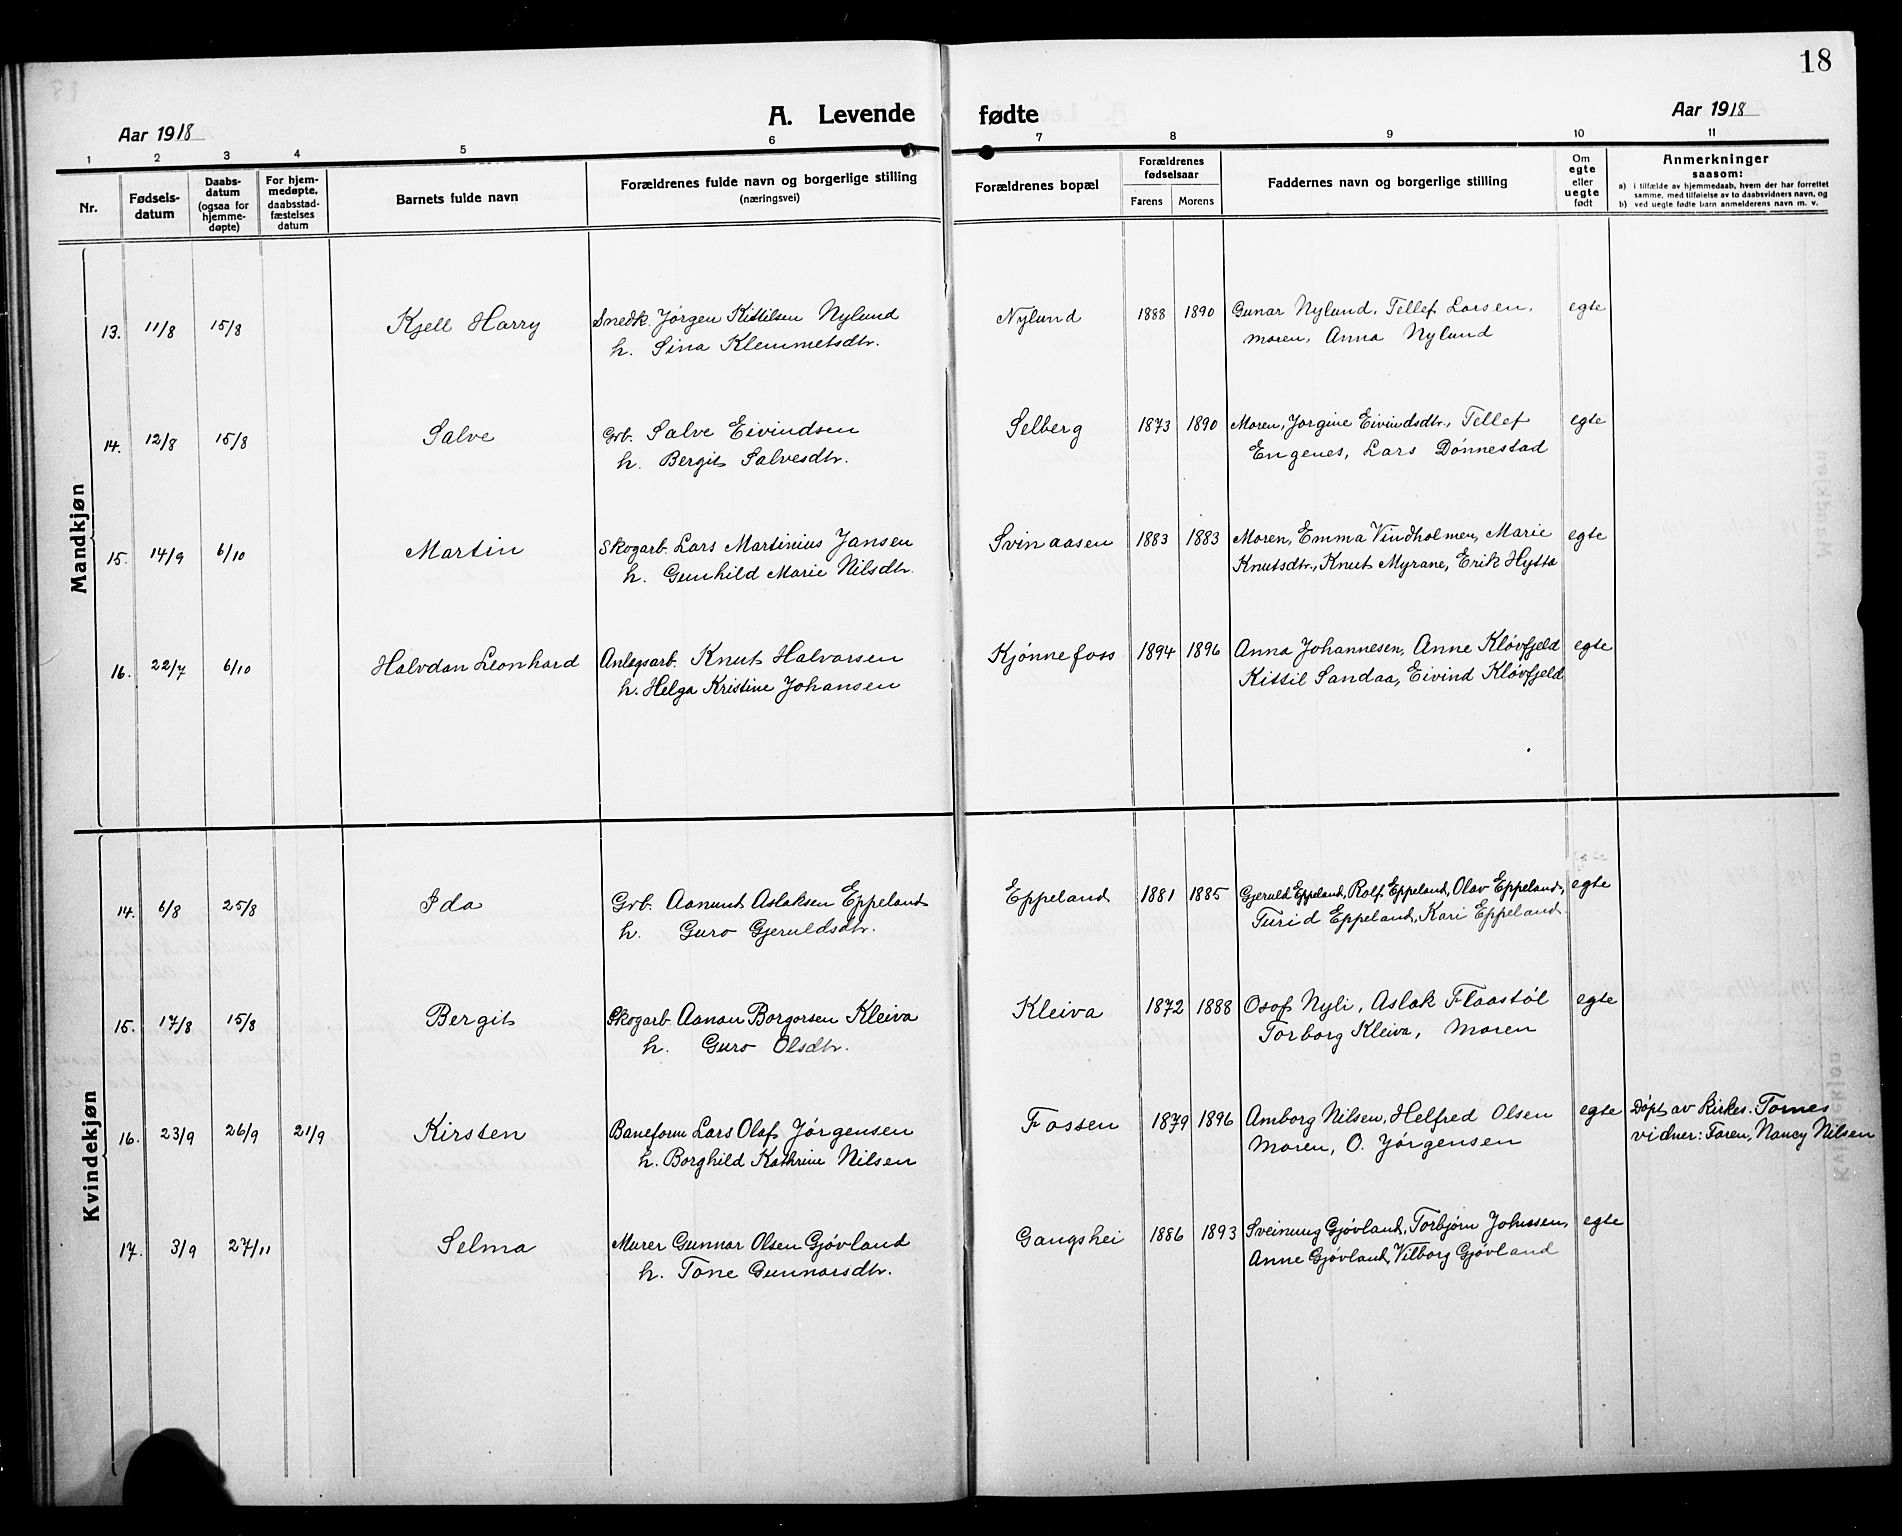 18
A. Levende fødte
Aar 1918
Aar 1918
1 2 3 4 5 6 7 8 9 10 11
Nr.
Fødsels-
datum
Daabs-
datum
(ogsaa for
hjemme-
døpte)
For hjem-
medøpte,
daabsstad-
fæstelses
datum
Barnets fulde navn
Forældrenes fulde navn og borgerlige stilling
(næringsvei)
Forældrenes bopæl
Forældrenes
fødselsaar
Farens Morens
Faddernes navn og borgerlige stilling
Om
egte
eller
uegte
født
Anmerkninger
saasom:
a) i tilfælde av hjemmedaab, hvem der har forrettet
samme, med tilføielse av to daabsvidners navn, og
b) ved uegte fødte barn anmelderens navn m. v.
Mandkjøn
13. 11/8 15/8 Kjell Harry Snedk. Jørgen Kittilsen Nylund Nylund 1888 1890 Gunar Nylund, Tellef Larsen, egte
h. Sina Klemmetsdtr. moren, Anna Nylund
14. 12/8 15/8 Salve Grb. Salve Eivindsen Selberg 1873 1890 Moren, Jorgine Eivindsdtr., Tellef egte
h. Bergit Salvesdtr. Engenes, Lars Dønnestad
15. 14/9 6/10 Martin Skogarb. Lars Martinius Jansen Svinaasen 1883 1883 Moren, Emma Vindholmen, Marie egte
h. Gunhild Marie Nilsdtr. Knutsdtr., Knut Myrane, Erik Hytta
16. 22/7 6/10 Halvdan Leonhard Anlegsarb. Knut Halvorsen Kjønnefoss 1894 1896 Anna Johannesen, Anne Kløvfjeld egte
h. Helga Kristine Johansen Kittil Sandaa, Eivind Kløvfjeld
Kvindekjøn
14. 6/8 25/8 Ida Grb. Aanund Aslaksen Eppeland Eppeland 1881 1885 Gjeruld Eppeland, Rolf Eppeland, Olav Eppeland, egte
h. Guro Gjeruldsdtr. Turid Eppeland, Kari Eppeland.
15. 17/8 15/8 Bergit Skogarb. Aanon Borgorsen Kleiva Kleiva 1872 1888 Osof Nyli, Aslak Flaastøl egte
h. Guro Olsdtr. Torborg Kleiva, moren
16. 23/9 26/9 21/9 Kirsten Baneform Lars Olaf Jørgensen Fossen 1879 1896 Amborg Nilsen, Helfred Olsen egte Døpt av Kirkes. Tornes
h. Borghild Kathrine Nilsen moren, O. Jørgensen vidner: Faren, Nancy Nilsen
17. 3/9 27/11 Selma Murer Gunnar Olsen Gjøvland Gangshei 1886 1893 Sveinung Gjøvland, Torbjørn Johnsen, egte
h. Tone Gunnarsdtr. Anne Gjøvland, Vilborg Gjøvland